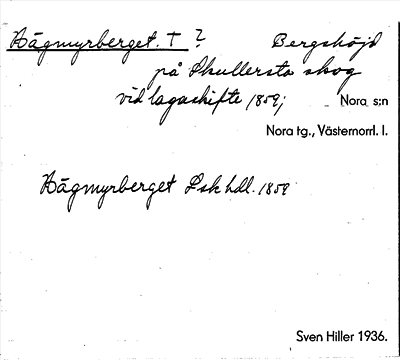 Hägmyrberget. † ? Bergshöjd
på Skullersta skog
vid lagaskifte 1859; Nora s:n
Nora tg., Västernorrl. l.
Hägmyrberget Lsk hdl. 1859
Sven Hiller 1936.